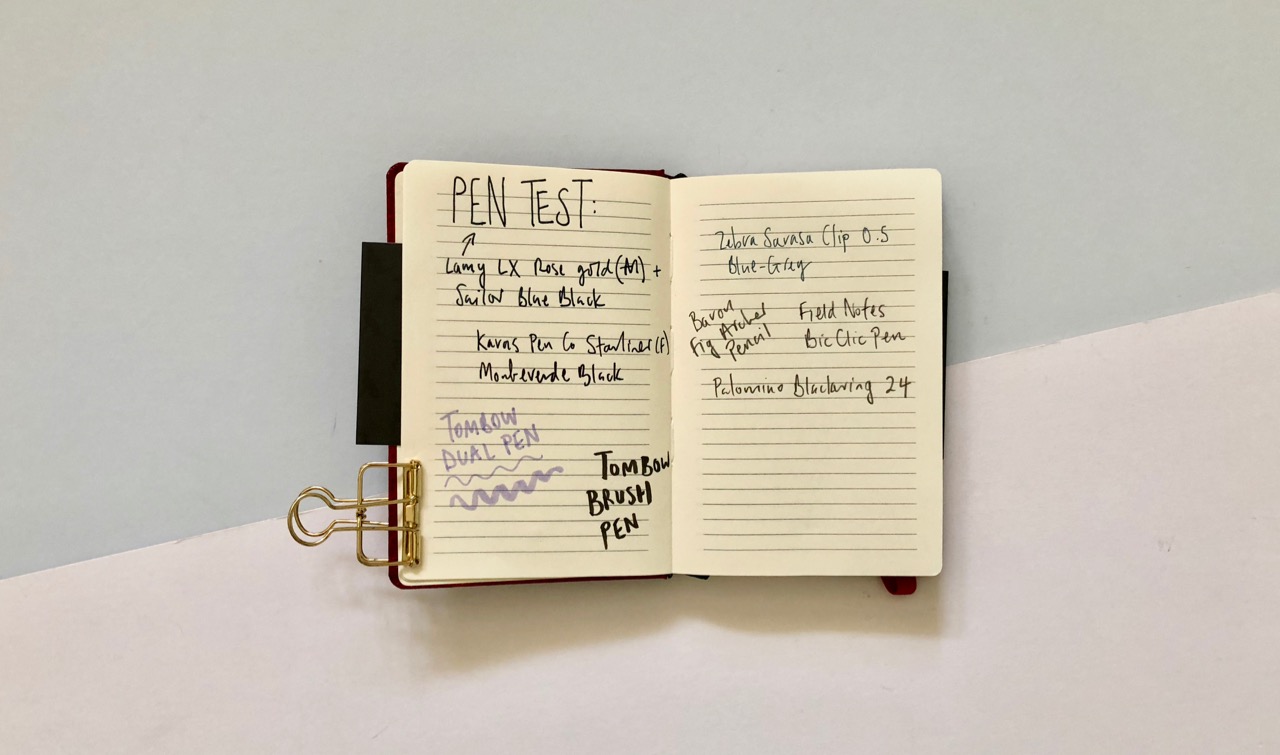 PEN TEST:
Lamy LX Rose gold (M) +
Sailor Blue Black
Karas Pen Co Starliner (F)
Monteverde Black
TOMBOW
DUAL PEN
TOMBOW
BRUSH
PEN
Zebra Sarasa Clip 0.5
Blue-Grey
Baron
Fig Archer
Pencil
Field Notes
Bic Clic Pen
Palomino Blackwing 24